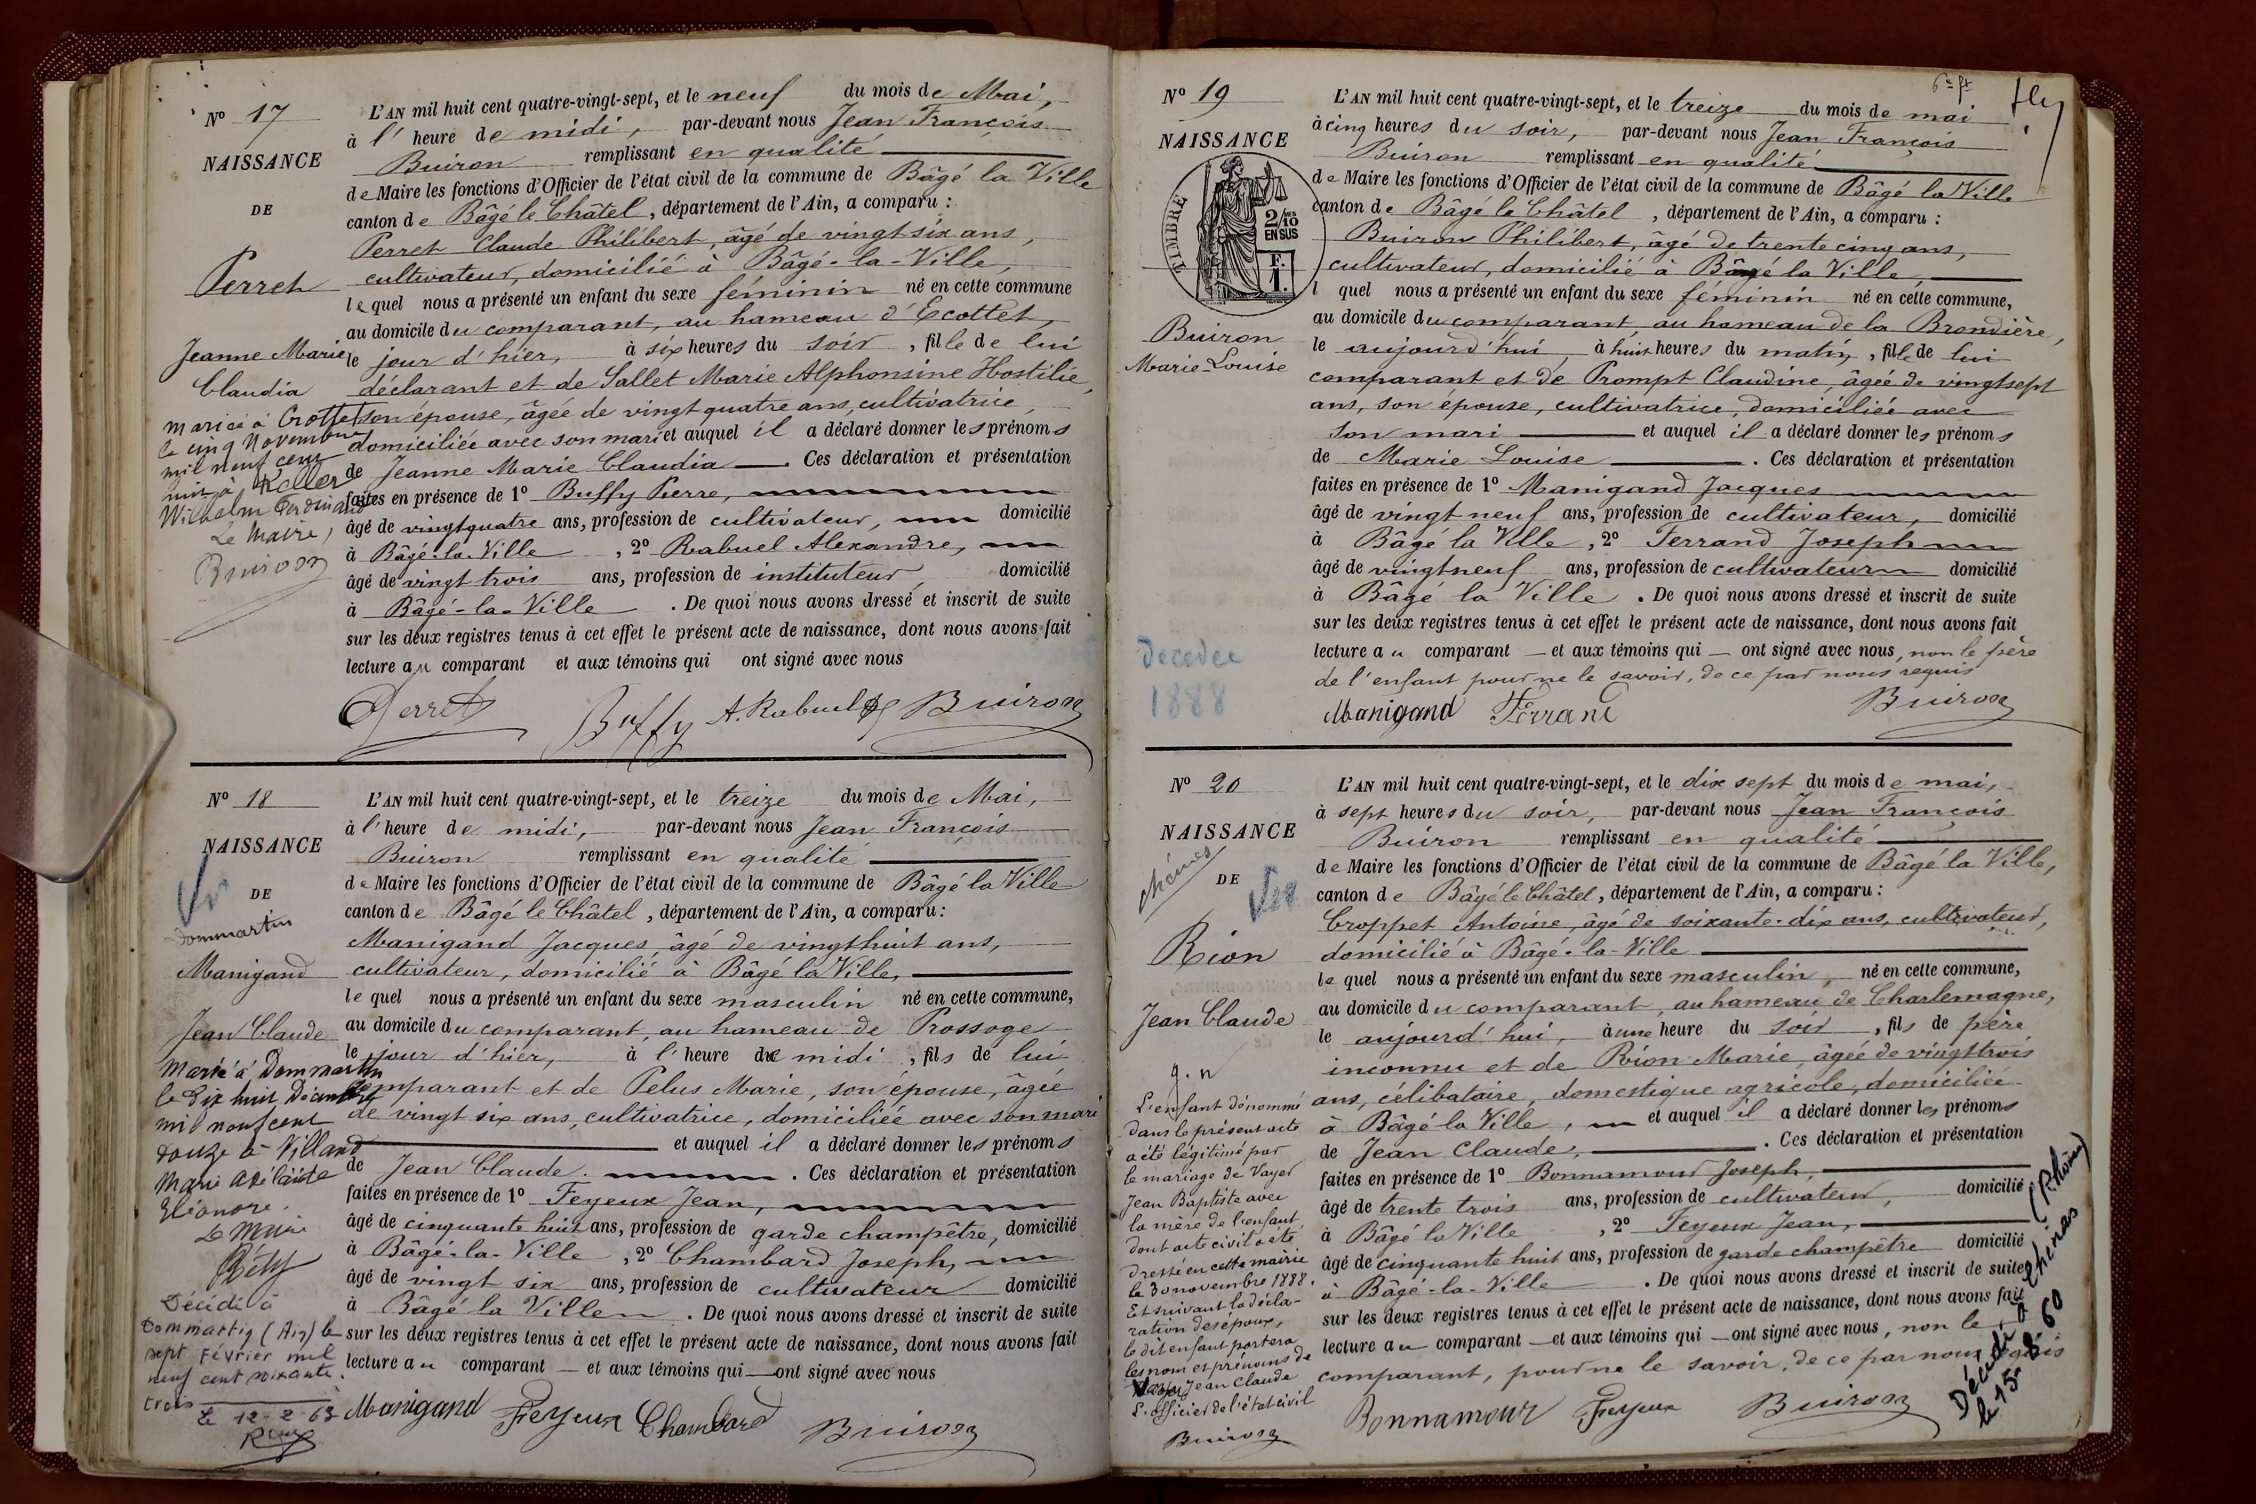 N° 17
NAISSANCE
DE
Perret
Jeanne Marie
Claudia
mariée à Crottet
le cinq Novembre
mil neuf cent
huit à Keller
Wilhelm Ferdinand
Le Maire,
Buiron
L'AN mil huit cent quatre-vingt-sept, et le neuf du mois de Mai,
à l'heure de midi, par-devant nous Jean François
Buiron remplissant en qualité
de Maire les fonctions d'Officier de l'état civil de la commune de Bâgé la Ville
canton de Bâgé le Châtel, département de l'Ain, a comparu :
Perret Claude Philibert, âgé de vingt six ans,
cultivateur, domicilié à Bâgé-la-Ville,
lequel nous a présenté un enfant du sexe féminin né en cette commune
au domicile du comparant, au hameau d'Ecottet,
le jour d'hier, à six heures du soir, fille de lui
déclarant et de Sallet Marie Alphonsine Hostilie,
son épouse, âgée de vingt quatre ans, cultivatrice,
domiciliée avec son mari et auquel il a déclaré donner les prénoms
de Jeanne Marie Claudia. Ces déclaration et présentation
faites en présence de 1° Buffy Pierre,
âgé de vingt quatre ans, profession de cultivateur, domicilié
à Bâgé-la-Ville, 2° Rabuel Alexandre,
âgé de vingt trois ans, profession de instituteur domicilié
à Bâgé-la-Ville. De quoi nous avons dressé et inscrit de suite
sur les deux registres tenus à cet effet le présent acte de naissance, dont nous avons fait
lecture au comparant et aux témoins qui ont signé avec nous
Perret Buffy A. Rabuel Buiron
N° 18
NAISSANCE
DE
Vu
Dommartin
Manigand
Jean Claude
Marié à Dommartin
le dix huit Décembre
mil neuf cent
douze à Villand
Marie Adélaïde
Eléonore.
Le Maire
Décédé à
Dommartin (Ain) le
sept Février mil
neuf cent soixante
trois
Le 12-2-63
L'AN mil huit cent quatre-vingt-sept, et le treize du mois de Mai,
à l'heure de midi, par-devant nous Jean François
Buiron remplissant en qualité
de Maire les fonctions d'Officier de l'état civil de la commune de Bâgé la Ville
canton de Bâgé le Châtel, département de l'Ain, a comparu :
Manigand Jacques, âgé de vingt huit ans,
cultivateur, domicilié à Bâgé la Ville,
lequel nous a présenté un enfant du sexe masculin né en cette commune,
au domicile du comparant, au hameau de Prossoge
le jour d'hier, à l'heure de midi, fils de lui
comparant et de Pelus Marie, son épouse, âgée
de vingt six ans, cultivatrice, domiciliée avec son mari
et auquel il a déclaré donner les prénoms
de Jean Claude. Ces déclaration et présentation
faites en présence de 1° Feyeux Jean,
âgé de cinquante huit ans, profession de garde champêtre, domicilié
à Bâgé-la-Ville, 2° Chambard Joseph,
âgé de vingt six ans, profession de cultivateur domicilié
à Bâgé la Ville. De quoi nous avons dressé et inscrit de suite
sur les deux registres tenus à cet effet le présent acte de naissance, dont nous avons fait
lecture au comparant et aux témoins qui ont signé avec nous
Manigand Feyeux Chambard Buiron
N° 19
NAISSANCE
TIMBRE
2/10 EN SUS
F. 1.
Buiron
Marie-Louise
Décédée
1888
L'AN mil huit cent quatre-vingt-sept, et le treize du mois de mai
à cinq heures du soir, par-devant nous Jean François
Buiron remplissant en qualité
de Maire les fonctions d'Officier de l'état civil de la commune de Bâgé la Ville
canton de Bâgé le Châtel, département de l'Ain, a comparu :
Buiron Philibert, âgé de trente cinq ans,
cultivateur, domicilié à Bâgé la Ville,
l quel nous a présenté un enfant du sexe féminin né en cette commune,
au domicile du comparant, au hameau de la Brondière,
le aujourd'hui, à huit heures du matin, fille de lui
comparant et de Prompt Claudine, âgée de vingt sept
ans, son épouse, cultivatrice, domiciliée avec
son mari et auquel il a déclaré donner les prénoms
de Marie Louise. Ces déclaration et présentation
faites en présence de 1° Manigand Jacques
âgé de vingt neuf ans, profession de cultivateur, domicilié
à Bâgé la Ville, 2° Ferrand Joseph
âgé de vingt neuf ans, profession de cultivateur domicilié
à Bâgé la Ville. De quoi nous avons dressé et inscrit de suite
sur les deux registres tenus à cet effet le présent acte de naissance, dont nous avons fait
lecture au comparant et aux témoins qui ont signé avec nous, non le père
de l'enfant pour ne le savoir, de ce par nous requis
Manigand Ferrand Buiron
N° 20
NAISSANCE
DE
Chénas
Vu
Rion
Jean Claude
g. n
L'enfant dénommé
dans le présent acte
a été légitimé par
le mariage de Vayer
Jean Baptiste avec
la mère de l'enfant
dont acte civil a été
dressé en cette mairie
le 30 novembre 1888.
Et suivant la décla-
ration des époux,
le dit enfant portera
les nom et prénoms de
Vayer Jean Claude
L'officier de l'état civil
Buiron
L'AN mil huit cent quatre-vingt-sept, et le dix sept du mois de mai,
à sept heures du soir, par-devant nous Jean François
Buiron remplissant en qualité
de Maire les fonctions d'Officier de l'état civil de la commune de Bâgé la Ville,
canton de Bâgé le Châtel, département de l'Ain, a comparu :
Croppet Antoine, âgé de soixante-dix ans, cultivateur,
domicilié à Bâgé-la-Ville
lequel nous a présenté un enfant du sexe masculin, né en cette commune,
au domicile du comparant, au hameau de Charlemagne,
le aujourd'hui, à une heure du soir, fils de père
inconnu et de Rion Marie, âgée de vingt trois
ans, célibataire, domestique agricole, domiciliée
à Bâgé la Ville, et auquel il a déclaré donner les prénoms
de Jean Claude, . Ces déclaration et présentation
faites en présence de 1° Bonnamour Joseph,
âgé de trente trois ans, profession de cultivateur, domicilié
à Bâgé la Ville, 2° Feyeux Jean,
âgé de cinquante huit ans, profession de garde champêtre domicilié
à Bâgé-la-Ville. De quoi nous avons dressé et inscrit de suite
sur les deux registres tenus à cet effet le présent acte de naissance, dont nous avons fait
lecture au comparant et aux témoins qui ont signé avec nous, non le
comparant, pour ne le savoir, de ce par nous requis
Bonnamour Feyeux Buiron
Décédé à Chénas (Rhône)
le 15-8-60